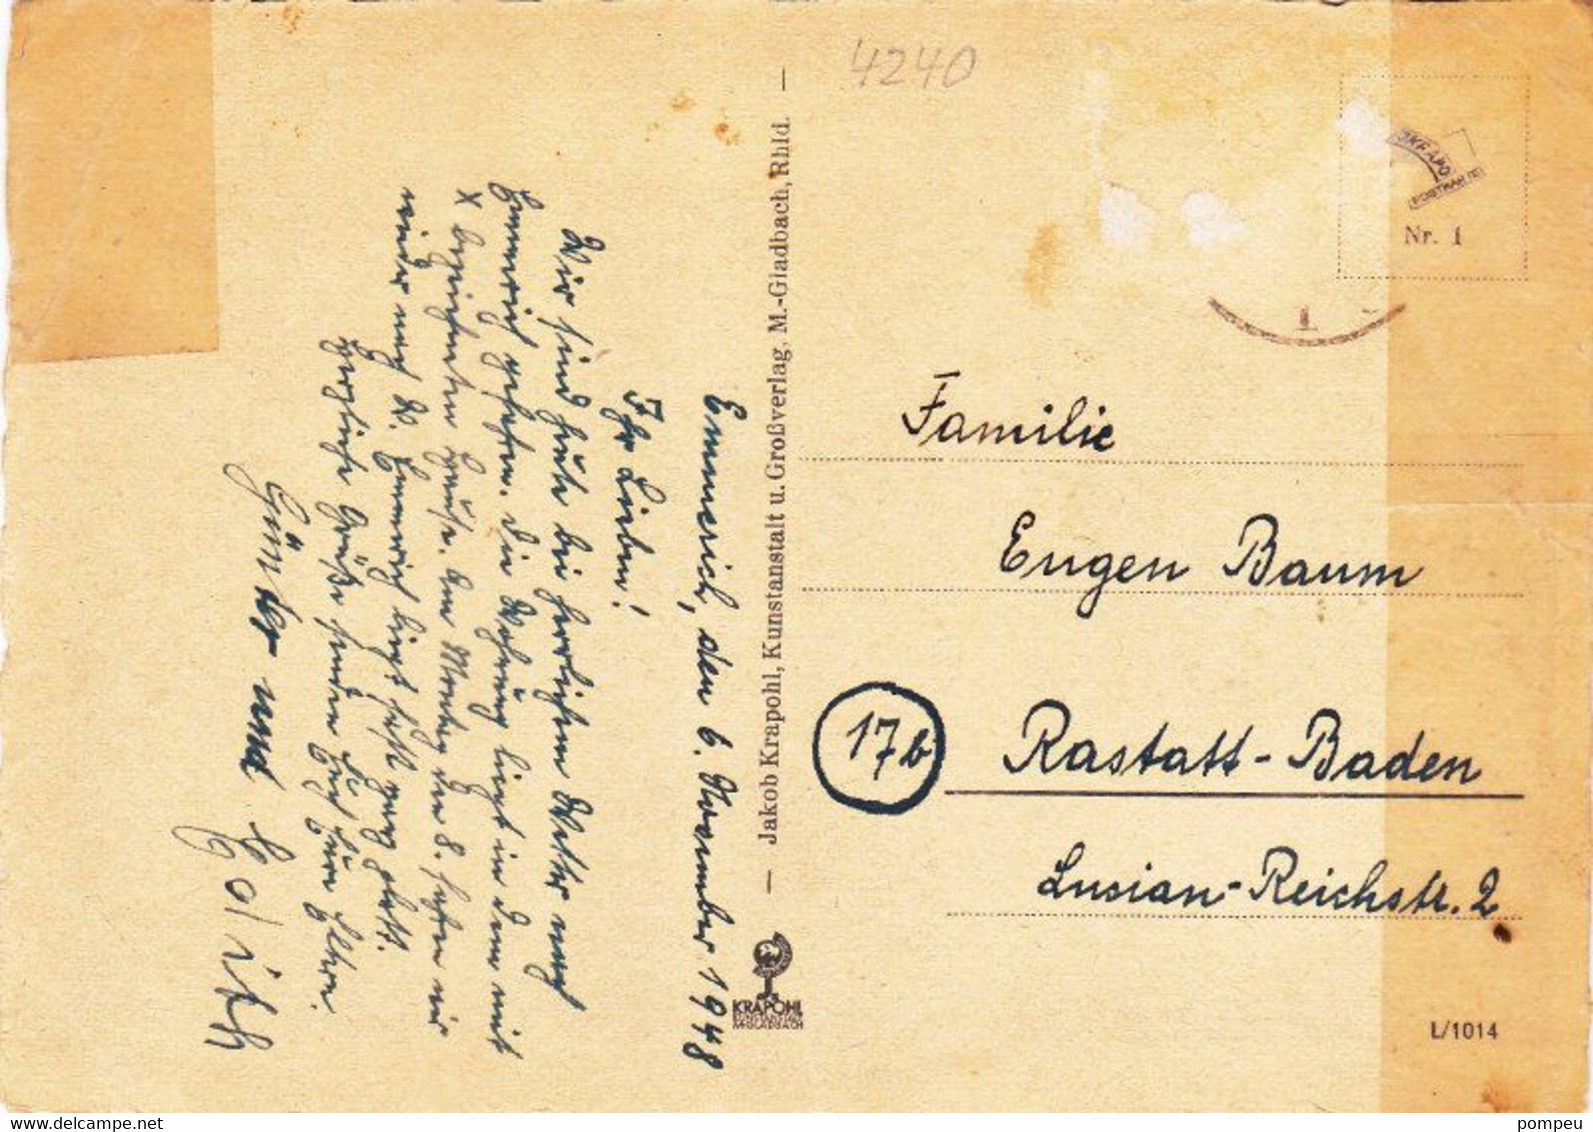 4240
JKRAPO
POSTKARTE
Nr. 1
Familie
Eugen Baum
17b
Rastatt-Baden
Lusian-Reichstr. 2
L/1014
— Jakob Krapohl, Kunstanstalt u. Großverlag, M.-Gladbach, Rhld. —
KRAPOHL
KUNSTANSTALT
M.GLADBACH
Emmerich, den 6. November 1948
Ihr Lieben!
Wir sind heute bei herrlichem Wetter nach
Emmerich gefahren. Die Wohnung liegt in dem mit
x bezeichneten Hause. Am Montag den 8. fahren wir
wieder nach W. Emmerich liegt fast ganz platt.
Herzliche Grüße senden Euch Eure Eltern.
Günter und Edith
delcampe.net
pompeu